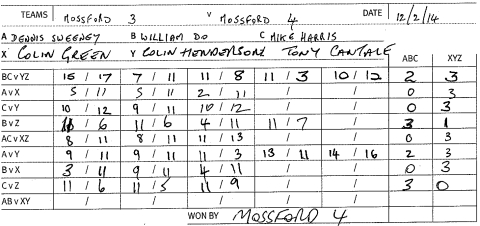 TEAMS MOSSFORD 3 V MOSSFORD 4 DATE 12/2/14
A DENNIS SWEENEY B WILLIAM DO C MIKE HARRIS
X COLIN GREEN Y COLIN HENDERSON Z TONY CANTALE ABC XYZ
BC v YZ 15 / 17 7 / 11 11 / 8 11 / 3 10 / 12 2 3
A v X 5 / 11 5 / 11 2 / 11 / / 0 3
C v Y 10 / 12 9 / 11 10 / 12 / / 0 3
B v Z 11 / 6 11 / 6 4 / 11 11 / 7 / 3 1
AC v XZ 8 / 11 8 / 11 11 / 13 / / 0 3
A v Y 9 / 11 9 / 11 11 / 3 13 / 11 14 / 16 2 3
B v X 3 / 11 9 / 11 4 / 11 / / 0 3
C v Z 11 / 6 11 / 5 11 / 9 / / 3 0
AB v XY / / / / /
WON BY MOSSFORD 4